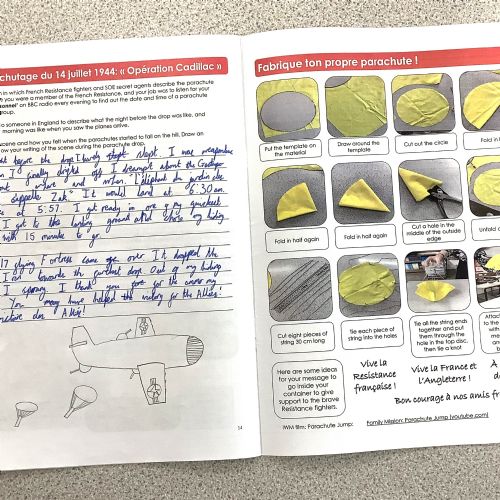 chutage du 14 juillet 1944: « Opération Cadillac »
in which French Resistance fighters and SOE secret agents describe the parachute
you were a member of the French Resistance, and your job was to listen for your
onnel' on BBC radio every evening to find out the date and time of a parachute
group.
o someone in England to describe what the night before the drop was like, and
morning was like when you saw the planes arrive.
scene and how you felt when the parachutes started to fall on the hill. Draw an
ow your writing of the scene during the parachute drop.
before the drop I barely slept. I was
I finally drifted off I dreamt about the
"L'éléphant du jardin des
s'appelle Zak." It would land at 6:30 am.
at 5:57. I got ready in one of my
I got to the landing ground and chose my hiding
with 15 minutes to go.
17 flying Fortress came over. It dropped the
I ran towards the closest drop. Out of my hiding
I sprang. I thank you for the
You may have helped the victory for the Allies.
14
Fabrique ton propre parachute !
Put the template on
the material
Draw around the
template
Cut out the circle
Fold in h
Fold in half again
Fold in half again
Cut a hole in the
middle of the outside
edge
Unfold
Cut eight pieces of
string 30 cm long
Tie each piece of
string into the holes
Tie all the string ends
together and put
them through the
hole in the top disc,
then tie a knot
Attac
to the
with
Here are some ideas
for your message to
go inside your
container to give
support to the brave
Resistance fighters.
Vive la
Resistance
française !
Vive la France et
l'Angleterre !
À
d
Bon courage à nos amis fr
IWM film: Parachute Jump:
Family Mission: Parachute Jump (youtube.com)